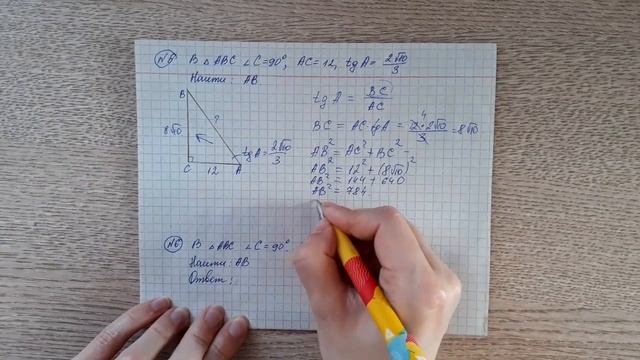 №6 В △ABC ∠C=90°, AC=12, tg A = 2√10/3
Найти: AB.
B
?
8√10
tg A = 2√10/3
C 12 A
tg A = BC/AC
BC = AC·tg A = 12·2√10/3 = 8√10
4
AB² = AC² + BC² -
AB² = 12² + (8√10)²
AB² = 144 + 640
AB² = 784
№6 В △ABC ∠C=90°
Найти: AB
Ответ: